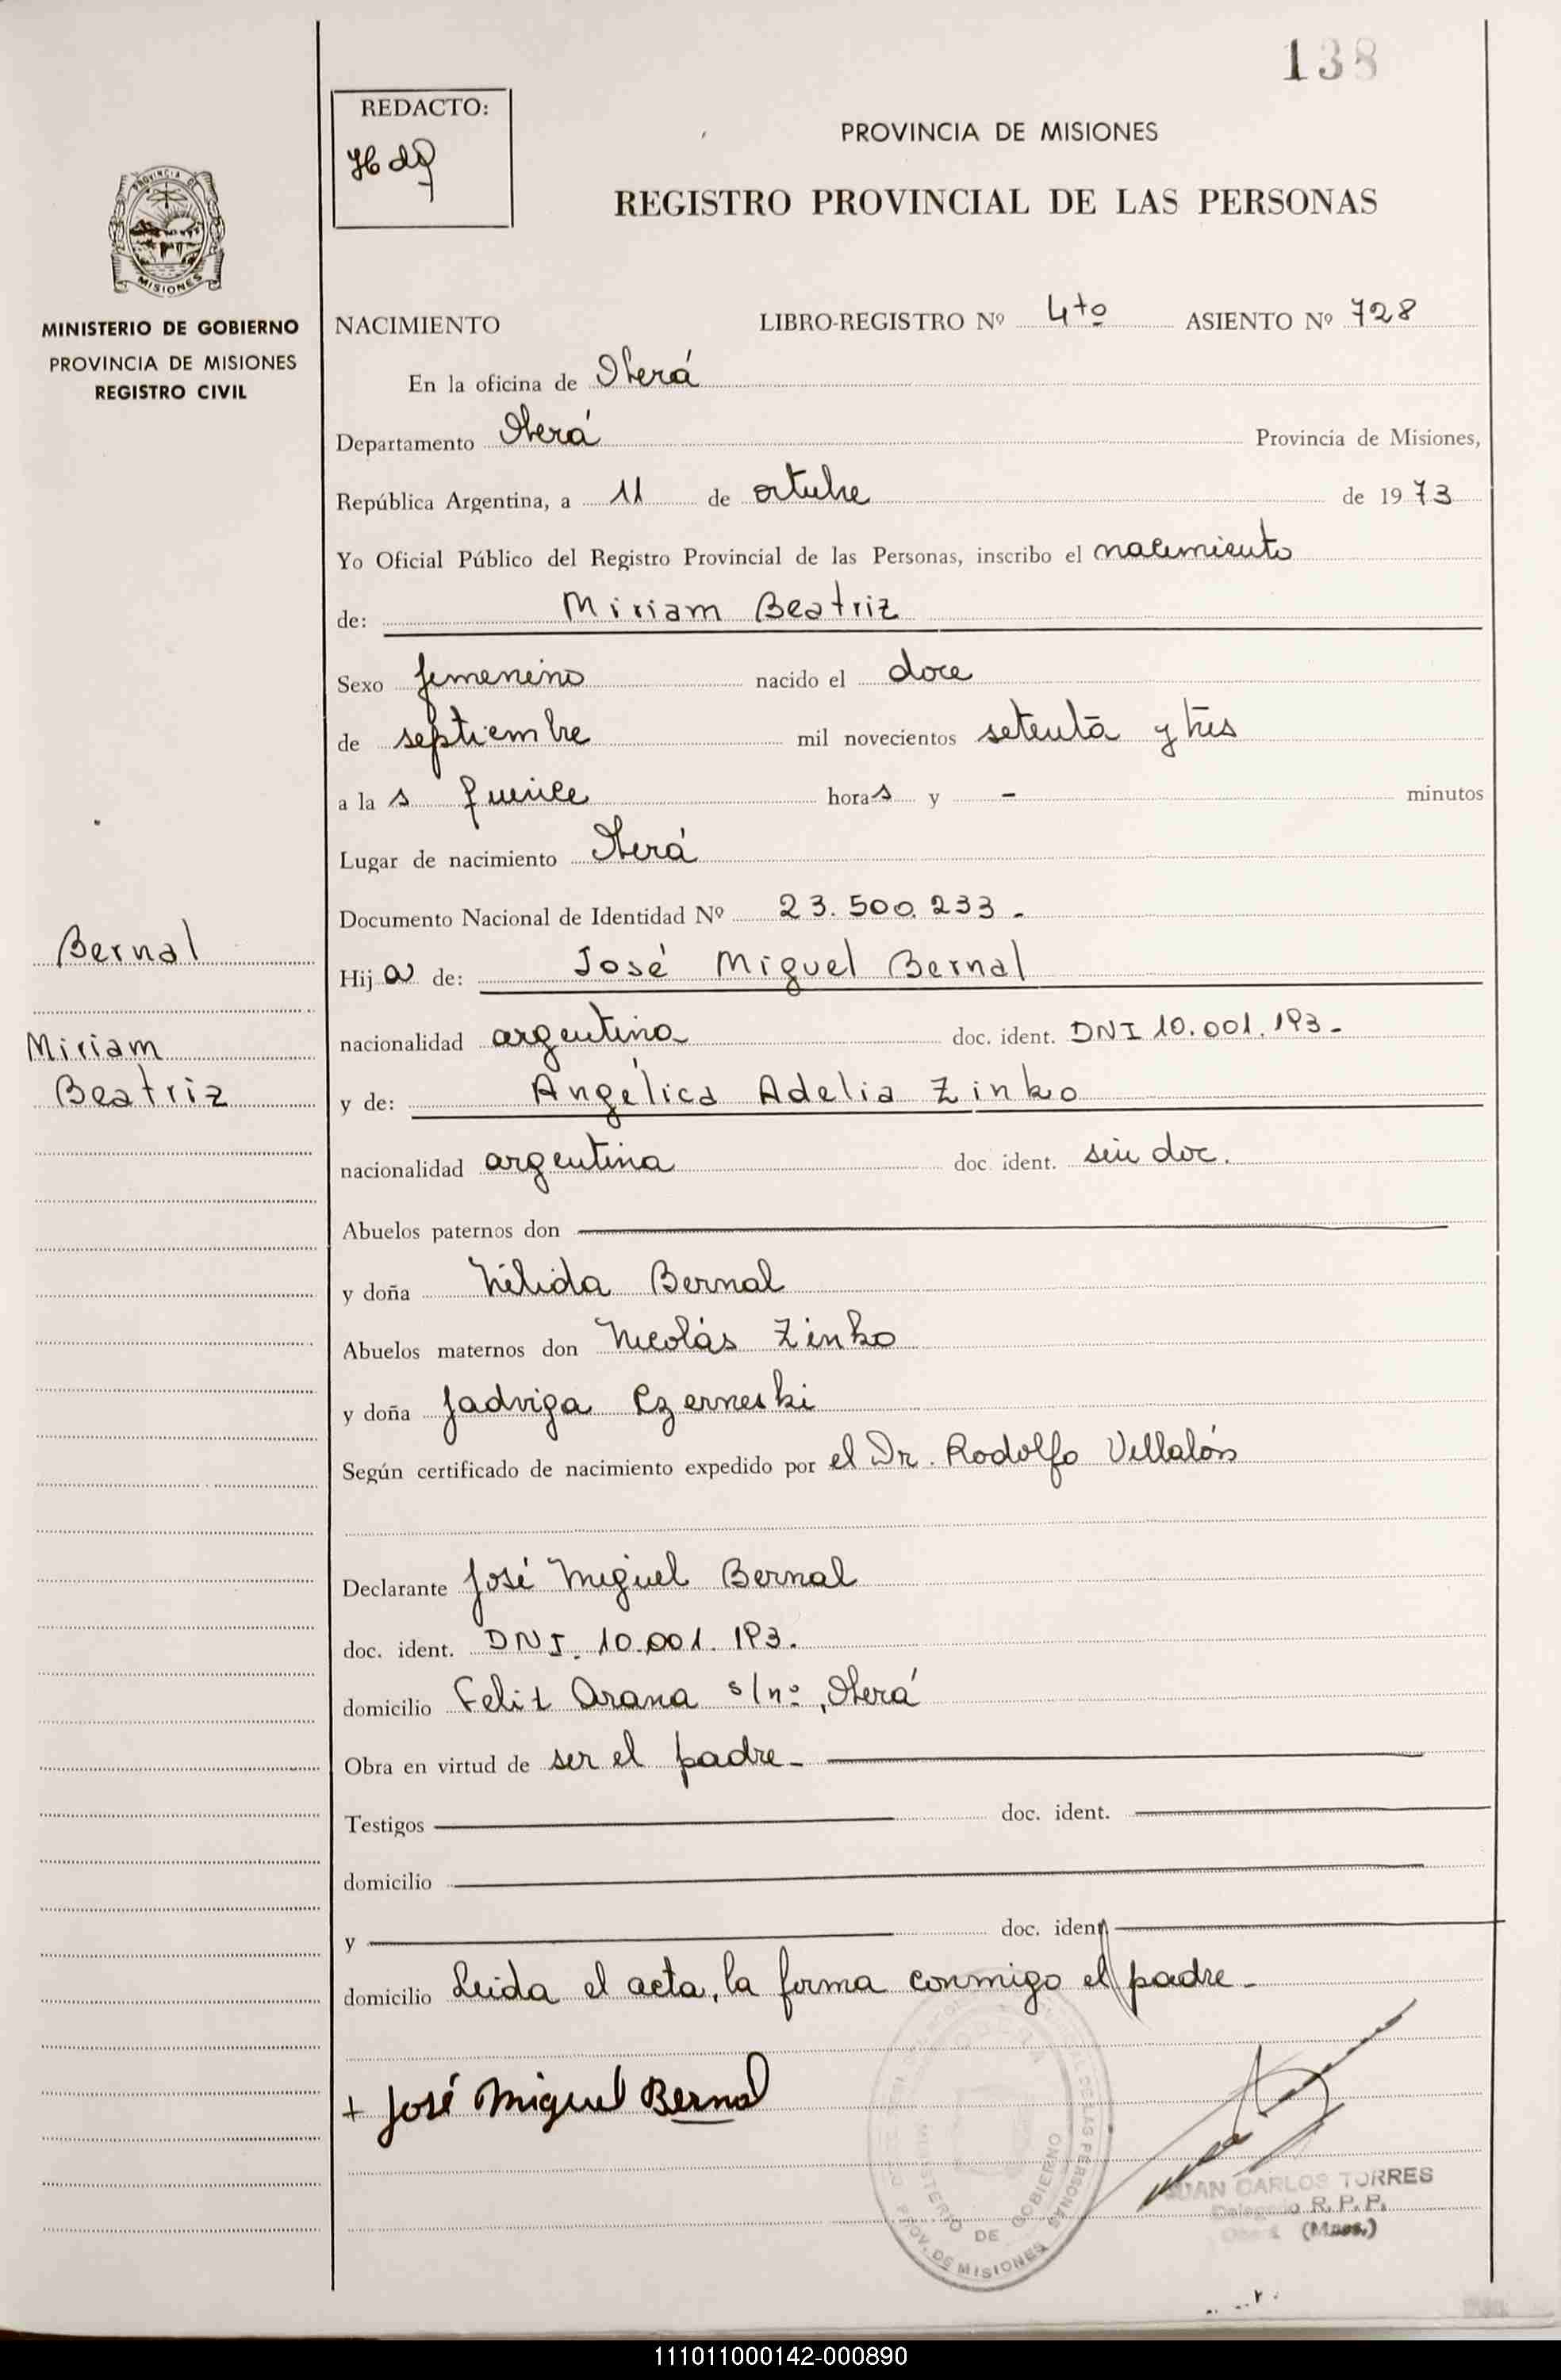 138
REDACTO:
PROVINCIA DE MISIONES
REGISTRO PROVINCIAL DE LAS PERSONAS
PROVINCIA DE
MISIONES
MINISTERIO DE GOBIERNO
PROVINCIA DE MISIONES
REGISTRO CIVIL
NACIMIENTO LIBRO-REGISTRO Nº 4to ASIENTO Nº 728
En la oficina de Oberá
Departamento Oberá Provincia de Misiones,
República Argentina, a 11 de octubre de 1973
Yo Oficial Público del Registro Provincial de las Personas, inscribo el nacimiento
de: Miriam Beatriz
Sexo femenino nacido el doce
de septiembre mil novecientos setenta y tres
a las quince horas y - minutos
Lugar de nacimiento Oberá
Documento Nacional de Identidad Nº 23.500.233.-
Bernal
Hija de: José Miguel Bernal
nacionalidad argentina doc. ident. DNI 10.001.193.-
Miriam
Beatriz
y de: Angélica Adelia Zinko
nacionalidad argentina doc. ident. sin doc.
Abuelos paternos don
y doña Nélida Bernal
Abuelos maternos don Nicolás Zinko
y doña Jadviga Czerneski
Según certificado de nacimiento expedido por el Dr. Rodolfo Villalón
Declarante José Miguel Bernal
doc. ident. DNI. 10.001.193.
domicilio Felix Arana s/nº, Oberá
Obra en virtud de ser el padre-
Testigos doc. ident.
domicilio
y doc. ident.
domicilio Leida el acta, la firma conmigo el padre-
+ José Miguel Bernal
MINISTERIO DE GOBIERNO
PROV. DE MISIONES
JUAN CARLOS TORRES
Delegado R. P. P.
Oberá (Mnes.)
111011000142-000890